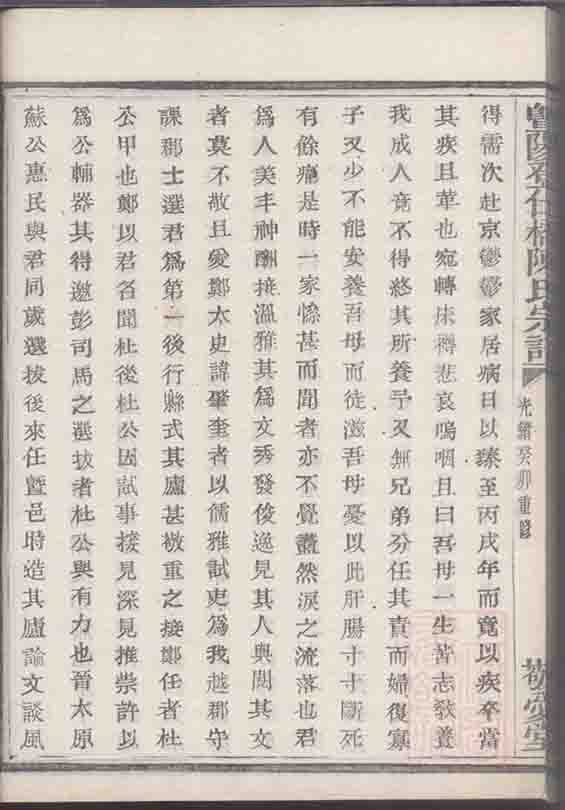 暨陽宅仁橋陳氏宗譜
光緒癸卯重修
敬愛堂
得需次赴京鬱鬱家居病日以臻至丙戌年而竟以疾卒當
其疾且革也宛轉床褥悲哀嗚咽且曰吾母一生苦志敎養
我成人竟不得終其所養予又無兄弟分任其責而婦復寡
子又少不能安養吾母而徒滋吾母憂以此肝腸寸寸斷死
有餘痛是時一家慘甚而聞者亦不覺衋然淚之流落也君
爲人美丰神酬接溫雅其爲文秀發俊逸見其人與聞其文
者莫不敬且愛鄭太史諱肇奎者以儒雅試吏爲我越郡守
課郡士選君爲第一後行縣式其廬甚敬重之接鄭任者杜
公甲也鄭以君名聞杜後杜公因試事接見深見推崇許以
爲公輔器其得邀彭司馬之選拔者杜公與有力也晉太原
蘇公惠民與君同歲選拔後來任暨邑時造其廬論文談風